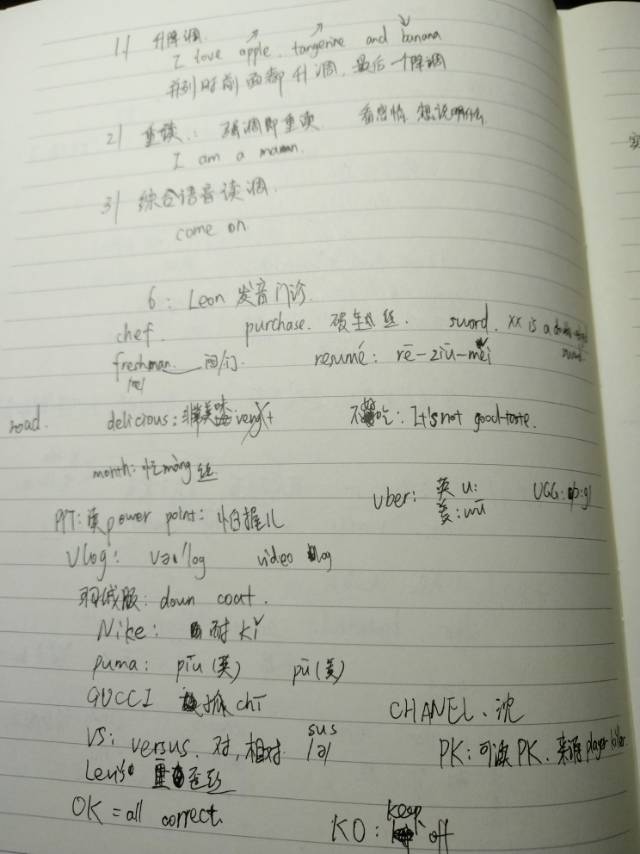 1) 升降调.
I love apple, tangerine and banana
并列时前面都升调,最后一个降调
2) 重读:强调即重读 看感情,想说明什么
I am a man.
3) 综合语音语调.
come on
6: Leon 发音门诊.
chef. purchase. sword. xx is a
freshman. resumé: rē-ziū-měi
/e/
road. delicious: 非常美味 very 不好吃: It's not good-taste.
month: 忙 màng 丝
uber: 英 u: UGG:
美: uū
PPT: 英 power point: 怕握儿
Vlog: və'log video log
羽绒服: down coat.
Nike: 耐 kǐ
puma: piū (英) pū (美)
GUCCI chī CHANEL、沈
sus
VS: versus. 对,相对 /ə/ PK: 可读 PK、来源 player killer
Levi's
OK = all correct.
keep
KO: off